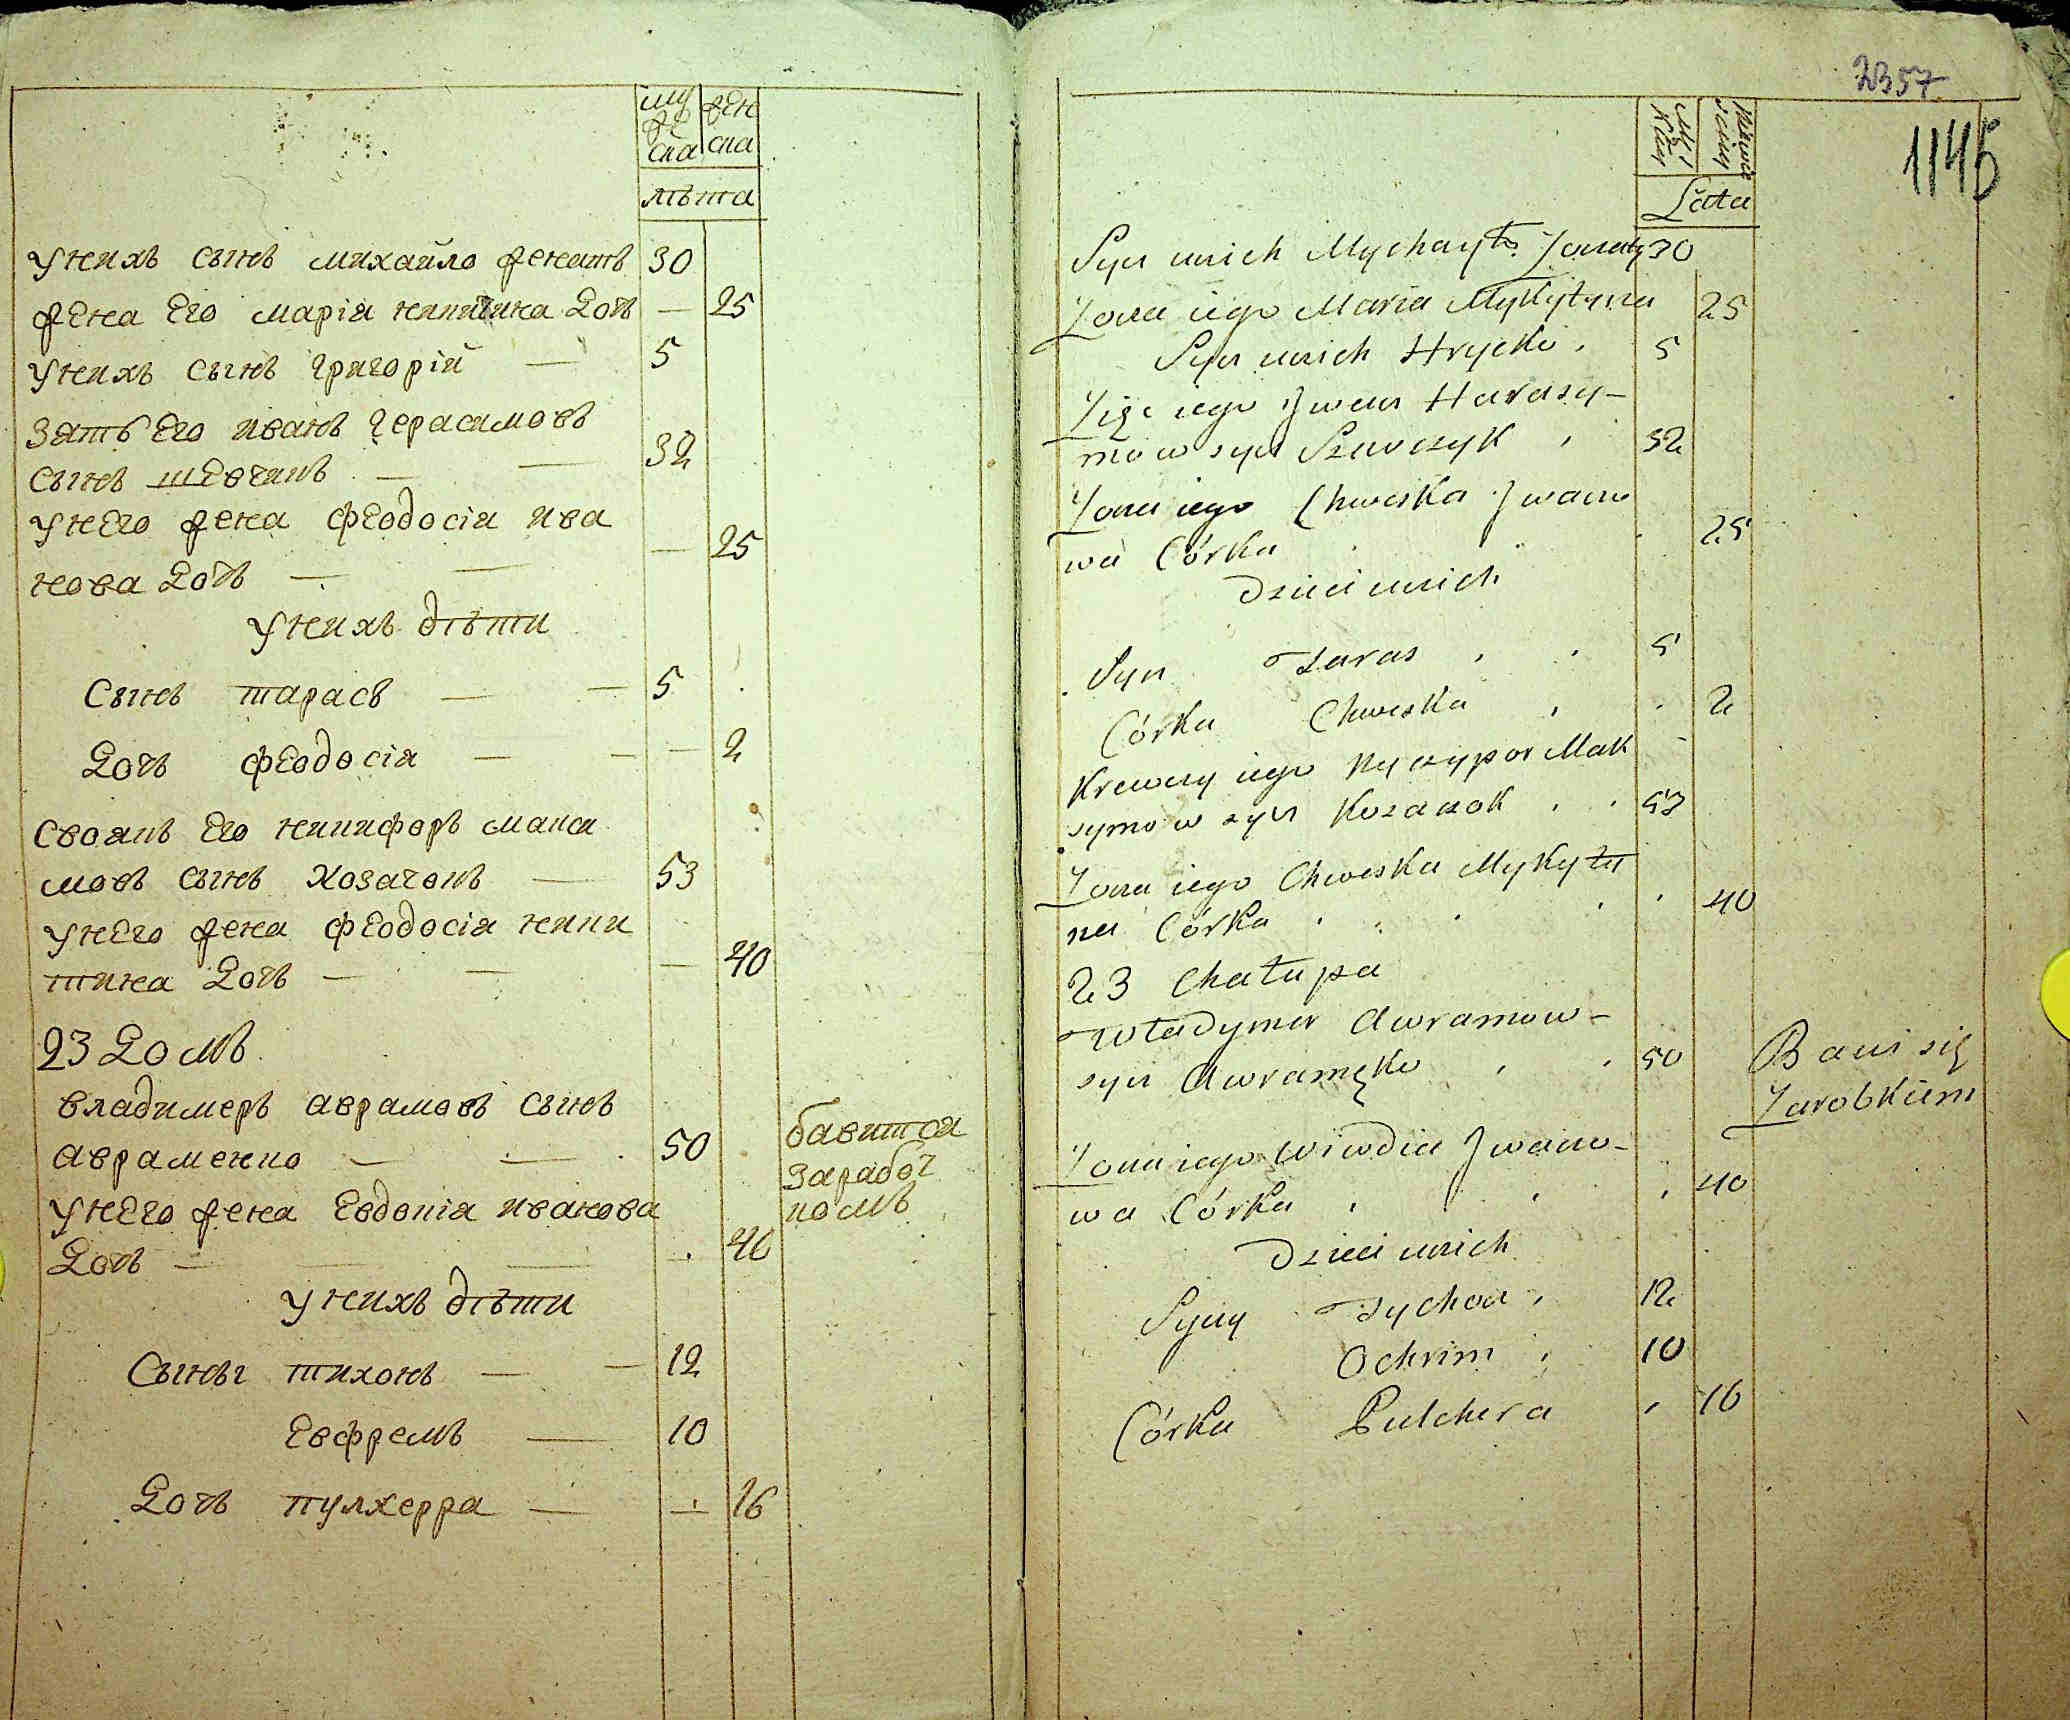 муже ска
жен ска
лѣта
у нихъ сынъ михайло женатъ 30
жена Его марія никитина дочь — 25
у нихъ сынъ григорій — 5
зять Его иванъ герасимовъ
сынъ шевчикъ — — 32
у нЕго жена феодосія ива
нова дочь — — — 25
у нихъ дѣти
Сынъ тарасъ — — 5
дочь феодосія — — — 2
своякъ Его никифоръ макси
мовъ сынъ козачокъ — 53
у нЕго жена феодосія ники
тина дочь — — — 40
23 домъ
владимеръ аврамовъ сынъ
авраменко — — 50
бавитса
заработ
комъ
у нЕго жена Евдокія иванова
дочь — — — 40
у нихъ дѣти
Сыны тихонъ — — 12
Евфремъ — 10
дочь пулхерра — — 16
2357
1145
Lata
Syn unich Mychayło Żonaty 30
Żona iego Maria Mykytyna 25
Syn unich Hrycko 5
Zięć iego Jwan Harasy-
mow syn Szewczyk 32
Żona iego Chweska Jwano
wa Córka 25
Dzieci unich
Syn Taras 5
Córka Chweska 2
Krewny iego Nyczypor Mak
symow syn Kozaczok 53
Żona iego Chweska Mykyty
na Córka 40
23 Chałupa
Władymer Awramow-
syn Awramęko 50
Bawi się
Zarobkiem
Żona iego Wiwdia Jwano-
wa Córka 40
Dzieci unich
Syny Tychon 12
Ochrim 10
Córka Pulchera 16